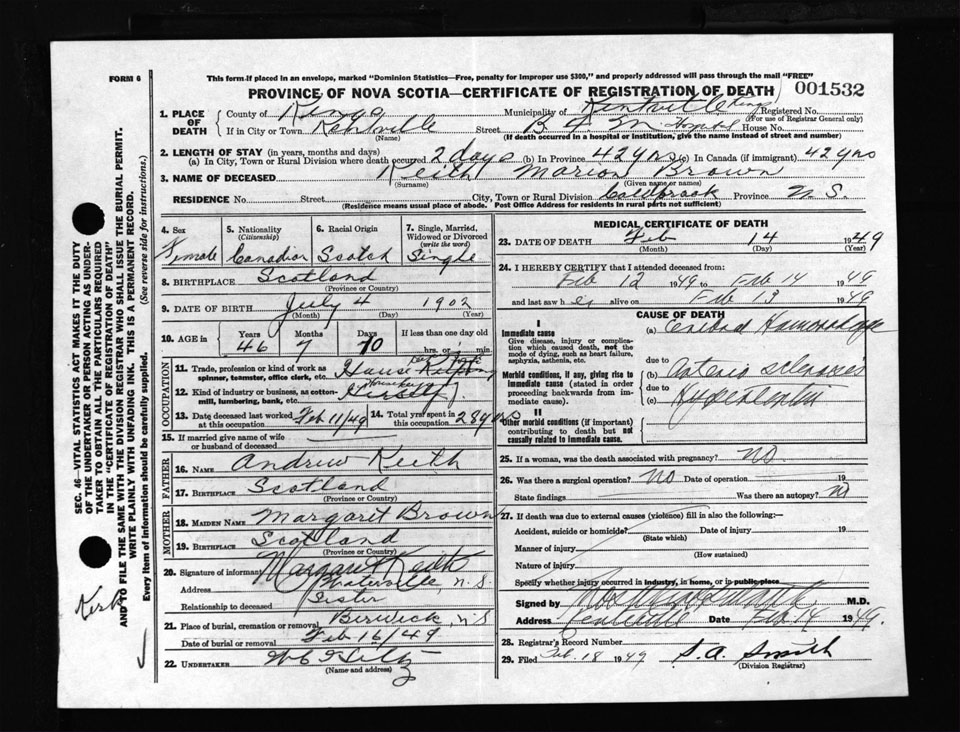 FORM 6
This form if placed in an envelope, marked "Dominion Statistics—Free, penalty for improper use $300," and properly addressed will pass through the mail "FREE"
PROVINCE OF NOVA SCOTIA—CERTIFICATE OF REGISTRATION OF DEATH 001532
1. PLACE OF DEATH
County of Kings Municipality of Kentville Kings Registered No.
(For use of Registrar General only)
If in City or Town Kentville Street B F M Hospital House No.
(Name) (If death occurred in a hospital or institution, give the name instead of street and number)
2. LENGTH OF STAY (in years, months and days)
(a) In City, Town or Rural Division where death occurred 2 days (b) In Province 42 yrs (c) In Canada (if immigrant) 42 yrs
3. NAME OF DECEASED Keith Marion Brown
(Surname) (Given name or names)
RESIDENCE No. Street City, Town or Rural Division Coldbrook Province N.S.
(Residence means usual place of abode. Post Office Address for residents in rural parts not sufficient)
4. Sex
Female
5. Nationality
(Citizenship)
Canadian
6. Racial Origin
Scotch
7. Single, Married, Widowed or Divorced
(write the word)
Single
8. BIRTHPLACE Scotland
(Province or Country)
9. DATE OF BIRTH July 4 1902
(Month) (Day) (Year)
10. AGE in
Years Months Days If less than one day old
46 7 10 hrs. or min.
OCCUPATION
11. Trade, profession or kind of work as spinner, teamster, office clerk, etc. House Keeping
12. Kind of industry or business, as cotton-mill, lumbering, bank, etc.
13. Date deceased last worked at this occupation Feb 11/49
14. Total yrs. spent in this occupation 28 yrs
15. If married give name of wife or husband of deceased
FATHER
16. NAME Andrew Keith
17. BIRTHPLACE Scotland
(Province or Country)
MOTHER
18. MAIDEN NAME Margaret Brown
19. BIRTHPLACE Scotland
(Province or Country)
20. Signature of informant Margaret Keith
Address Waterville, N.S.
Relationship to deceased Sister
21. Place of burial, cremation or removal Berwick, N.S
Date of burial or removal Feb 16/49
22. UNDERTAKER
(Name and address)
MEDICAL CERTIFICATE OF DEATH
23. DATE OF DEATH Feb 14 1949
(Month) (Day) (Year)
24. I HEREBY CERTIFY that I attended deceased from:
Feb 12 1949 to Feb 14 1949
and last saw her alive on Feb 13 1949
CAUSE OF DEATH
I
Immediate cause
Give disease, injury or complication which caused death, not the mode of dying, such as heart failure, asphyxia, asthenia, etc.
(a) Cerebral Haemorrhage
due to
Morbid conditions, if any, giving rise to immediate cause (stated in order proceeding backwards from immediate cause).
(b) Arterio sclerosis
due to
(c) Hypertension
II
Other morbid conditions (if important) contributing to death but not causally related to immediate cause.
25. If a woman, was the death associated with pregnancy? NO
26. Was there a surgical operation? NO Date of operation 19
State findings Was there an autopsy? No
27. If death was due to external causes (violence) fill in also the following:—
Accident, suicide or homicide? Date of injury 19
(State which)
Manner of injury
(How sustained)
Nature of injury
Specify whether injury occurred in industry, in home, or in public place
Signed by M.D.
Address Date Feb 14 1949.
28. Registrar's Record Number
29. Filed Feb. 18 1949 S.A. Smith
(Division Registrar)
SEC. 46—VITAL STATISTICS ACT MAKES IT THE DUTY OF THE UNDERTAKER OR PERSON ACTING AS UNDERTAKER TO OBTAIN ALL THE PARTICULARS REQUIRED IN THE "CERTIFICATE OF REGISTRATION OF DEATH" AND TO FILE THE SAME WITH THE DIVISION REGISTRAR WHO SHALL ISSUE THE BURIAL PERMIT.
WRITE PLAINLY WITH UNFADING INK. THIS IS A PERMANENT RECORD.
Every item of information should be carefully supplied. (See reverse side for instructions.)